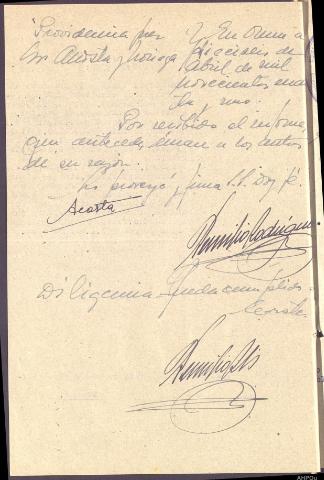 Providencia Juez
Sr. Acosta y Noriega
En Orense a
dieciseis de
Abril de mil
novecientos cuaren
ta y uno.
Por recibido el informe
que antecede únase a los autos
de su razón.
Lo proveyó y firma S.S. Doy fé.
Acosta
Diligencia.- queda cumplido.
AHPOu